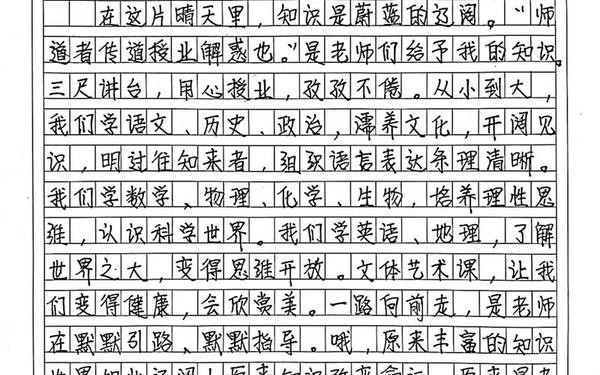 在这片晴天里，知识是蔚蓝的辽阔。“师
道者传道授业解惑也。”是老师们给予我的知识。
三尺讲台，用心授业，孜孜不倦。从小到大，
我们学语文、历史、政治，濡养文化，开阔见
识，明过往知来者，组织语言表达条理清晰。
我们学数学、物理、化学、生物，培养理性思
维，认识科学世界。我们学英语、地理，了解
世界之大，变得思维开放。文体艺术课，让我
们变得健康，会欣赏美。一路向前走，是老师
在默默引路、默默指导。哦，原来丰富的知识